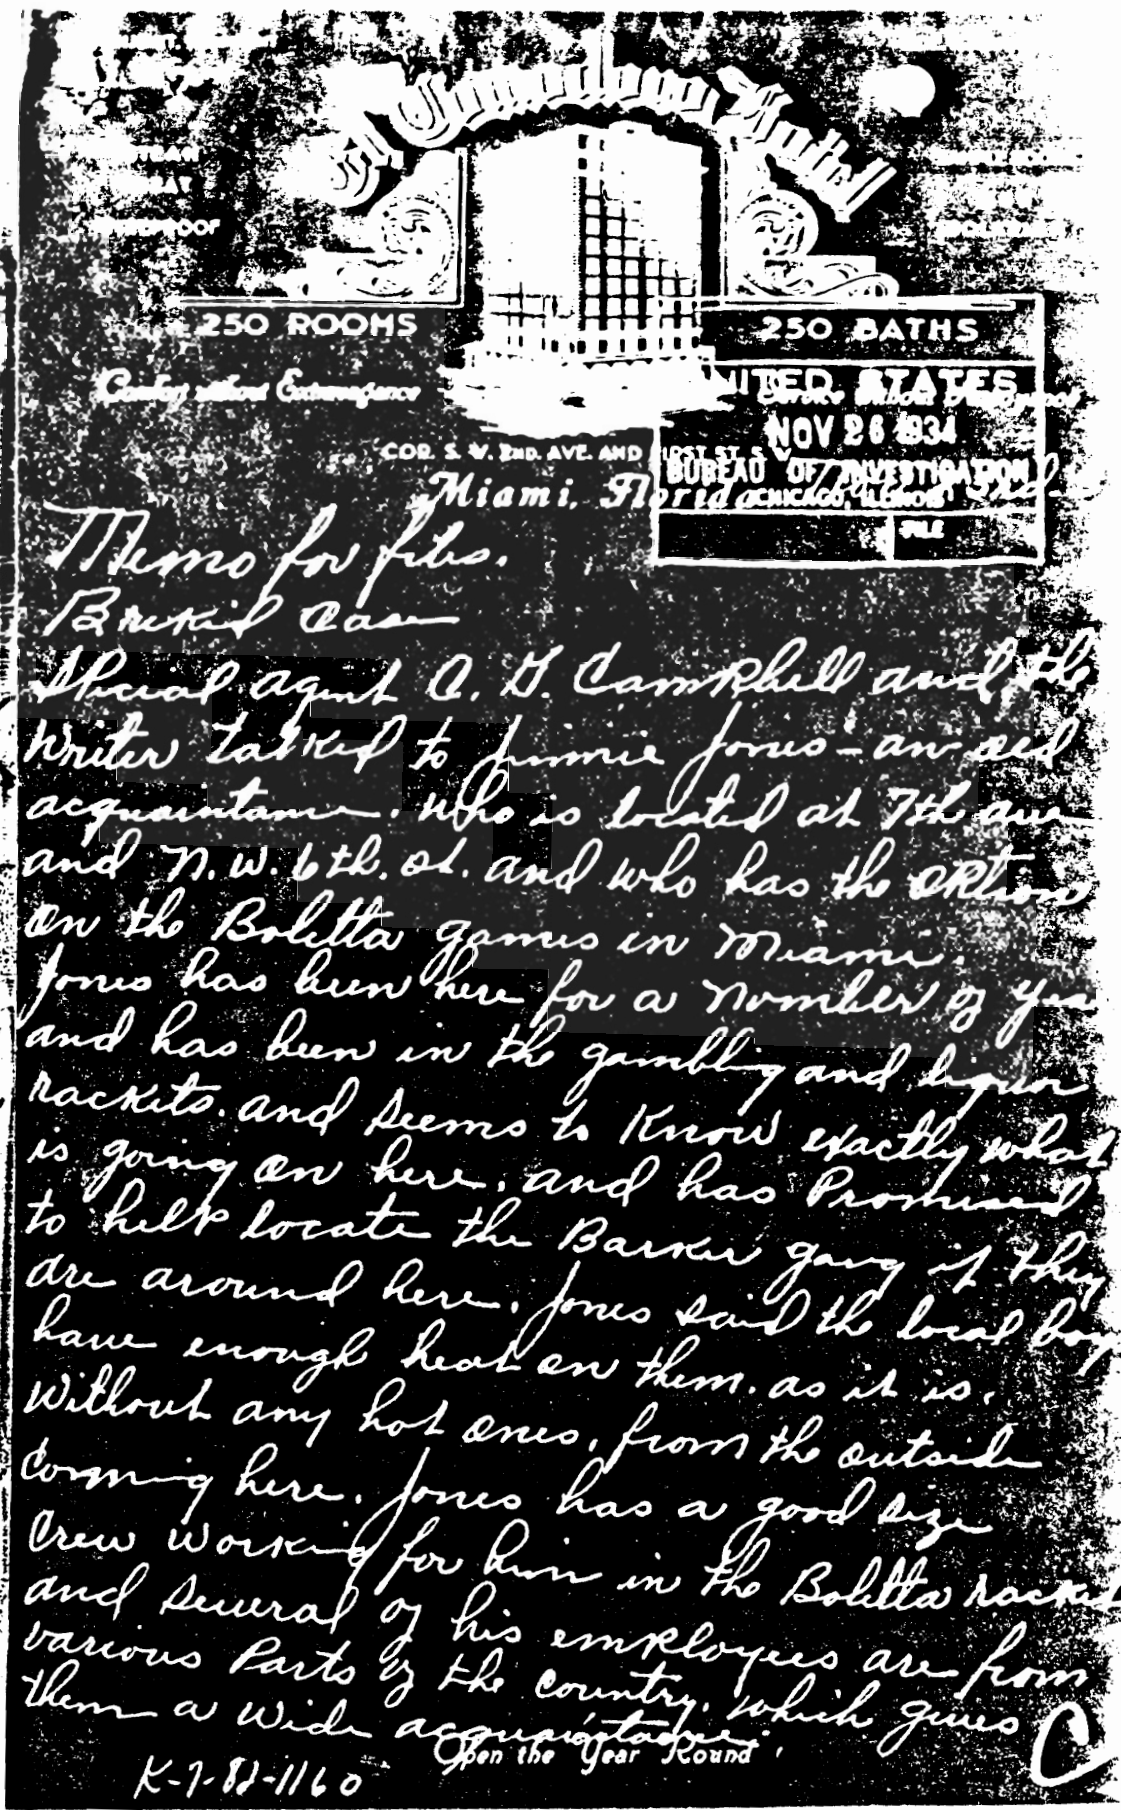 Hotel
250 ROOMS
250 BATHS
Comfort without Extravagance
UNITED STATES
NOV 26 1934
COR. S. W. 2ND. AVE. AND FIRST ST. S. W.
BUREAU OF INVESTIGATION
Miami, Florida
CHICAGO, ILLINOIS
FILE
Memo for files.
Brekid Case
Special agent A. G. Campbell and the
Writer talked to Jimmie Jones - an old
acquaintance. who is located at 7th ave
and N. W. 6th. st. and who has the option
on the Boletta games in Miami.
Jones has been here for a nomber of yea
and has been in the gambling and liquor
rackets. and seems to Know exactly what
is going on here. and has Promised
to help locate the Barker gang if they
are around here. Jones said the local boys
have enough heat on them. as it is.
Without any hot ones, from the outside
Comming here. Jones has a good size
Crew working for him in the Boletta racket
and several of his employees are from
various Parts of the country. which gives
them a wide acquaintance.
Open the Year Round
C
K-7-82-1160